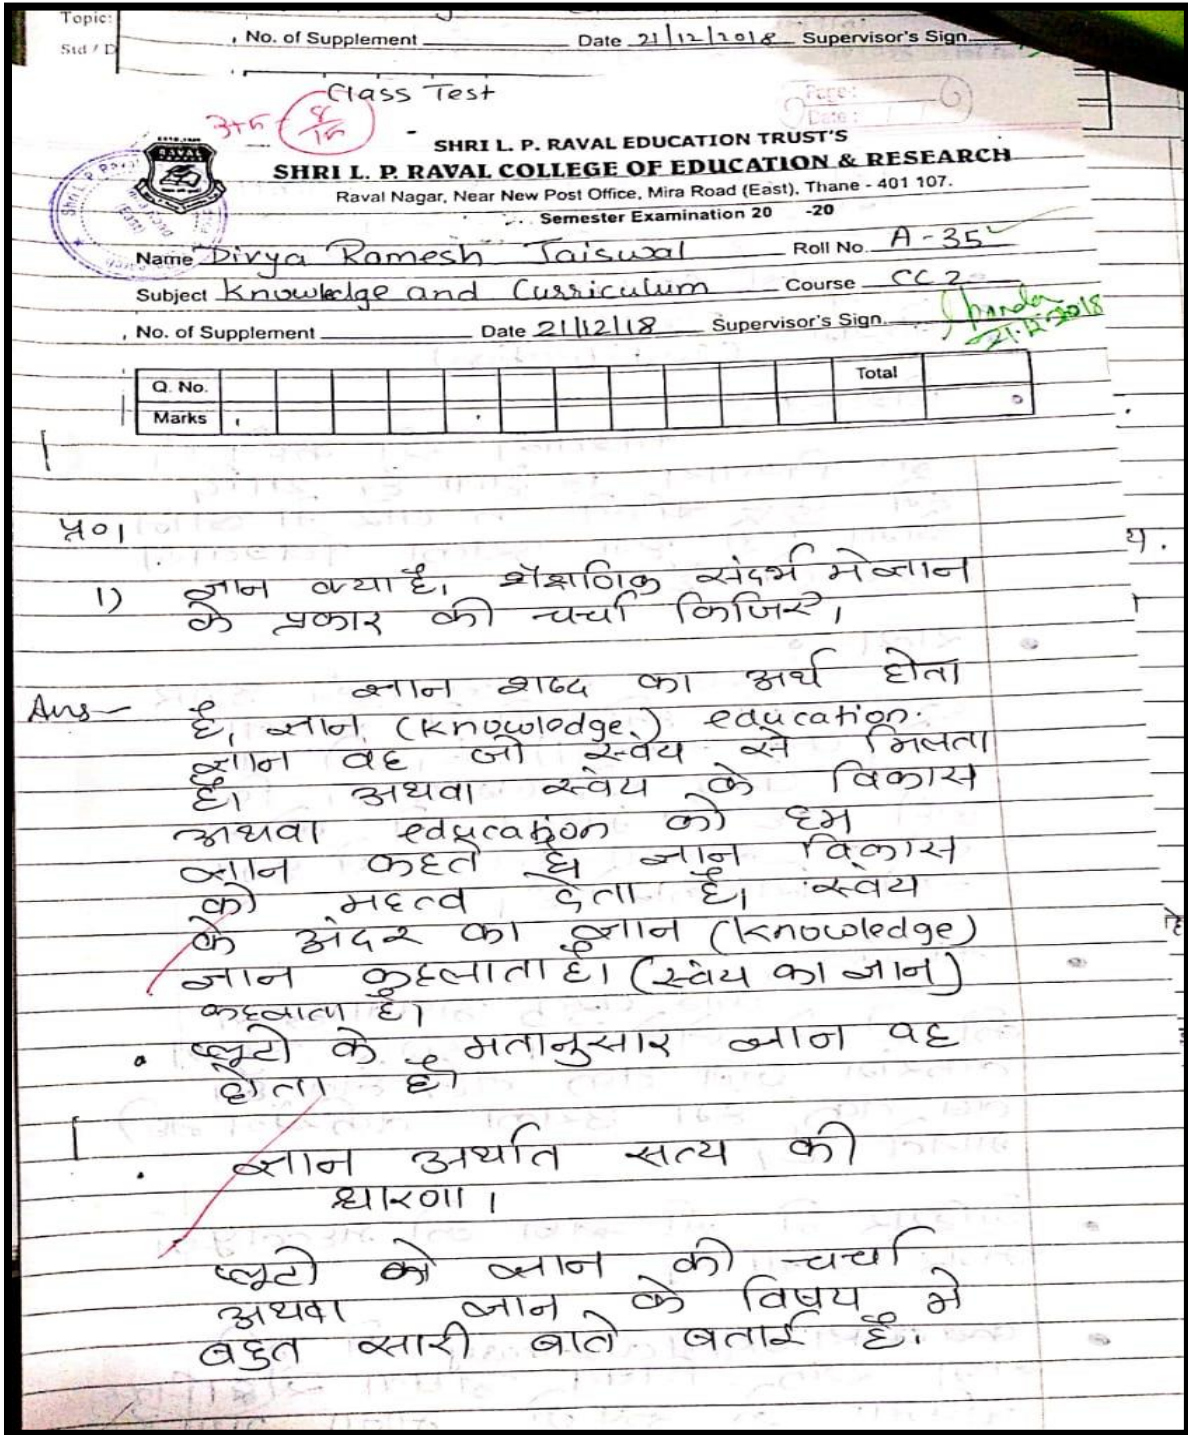 Topic:
Std / D
, No. of Supplement Date 21/12/2018 Supervisor's Sign.
Class Test
Page:
Date:
3+5 = 8/15
SHRI L. P. RAVAL EDUCATION TRUST'S
SHRI L. P. RAVAL COLLEGE OF EDUCATION & RESEARCH
Raval Nagar, Near New Post Office, Mira Road (East), Thane - 401 107.
Semester Examination 20 -20
RAVAL
Name Divya Ramesh Jaiswal Roll No. A-35
Subject Knowledge and Curriculum Course CC2
, No. of Supplement Date 21/12/18 Supervisor's Sign.
21-12-2018
Q. No. Total
Marks
प्र०1
1) ज्ञान क्या है, शैक्षणिक संदर्भ मे ज्ञान
के प्रकार की चर्चा किजिए।
Ans- ज्ञान शब्द का अर्थ होता
है, ज्ञान (knowledge) education.
ज्ञान वह जो स्वंय से मिलता
है। अथवा स्वंय के विकास
अथवा education को हम
ज्ञान कहते है ज्ञान विकास
को महत्व देता है। स्वंय
के अंदर का ज्ञान (knowledge)
ज्ञान कहलाता है। (स्वंय का ज्ञान)
कहलाता है।
• प्लूटो के मतानुसार ज्ञान वह
होता है
• ज्ञान अर्थात सत्य की
धारणा।
प्लूटो को ज्ञान की चर्चा
अथवा ज्ञान के विषय मे
बहुत सारी बाते बताई है।